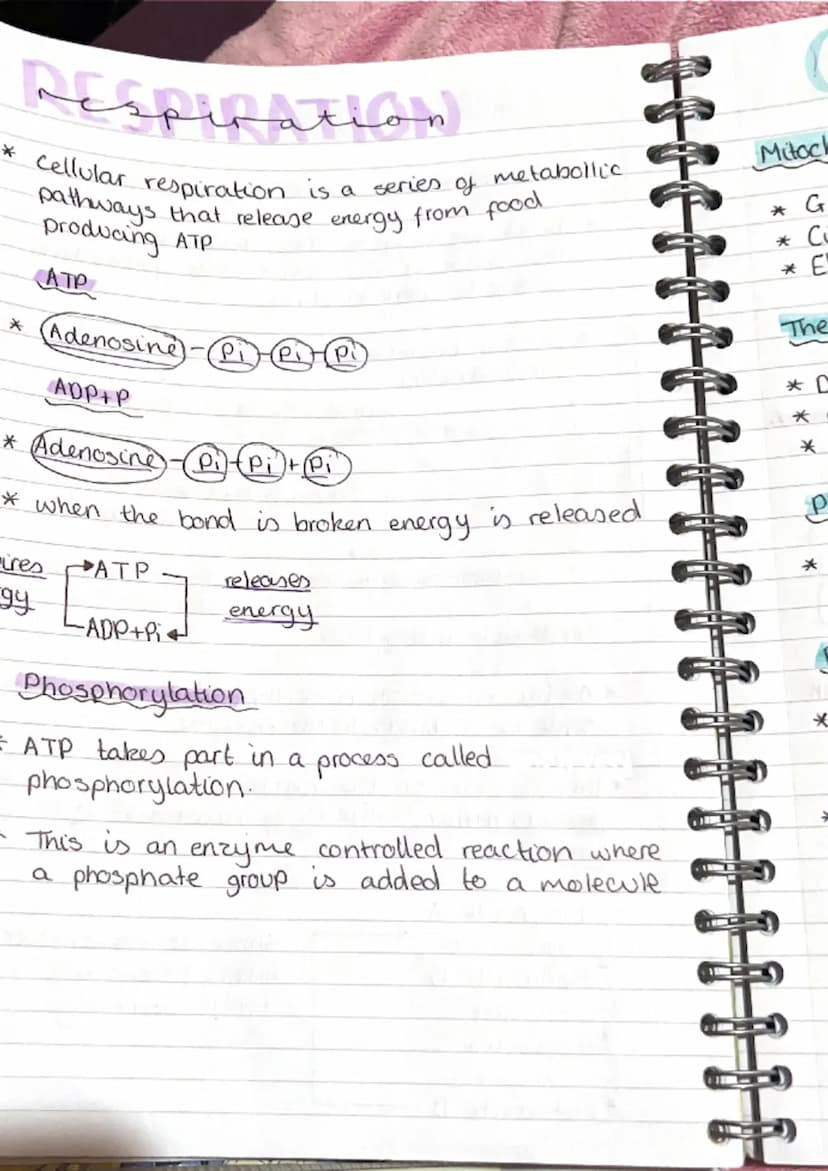 RESPIRATION
respiration
* cellular respiration is a series of metabollic
pathways that release energy from food
producing ATP
ATP
* Adenosine - Pi - Pi - Pi
ADP+P
* Adenosine - Pi - Pi + Pi
* when the bond is broken energy is released
ATP
releases
energy
ADP+Pi
Phosphorylation
* ATP takes part in a process called
phosphorylation.
This is an enzyme controlled reaction where
a phosphate group is added to a molecule
* G
*
*
The
* D
*
*
*
*